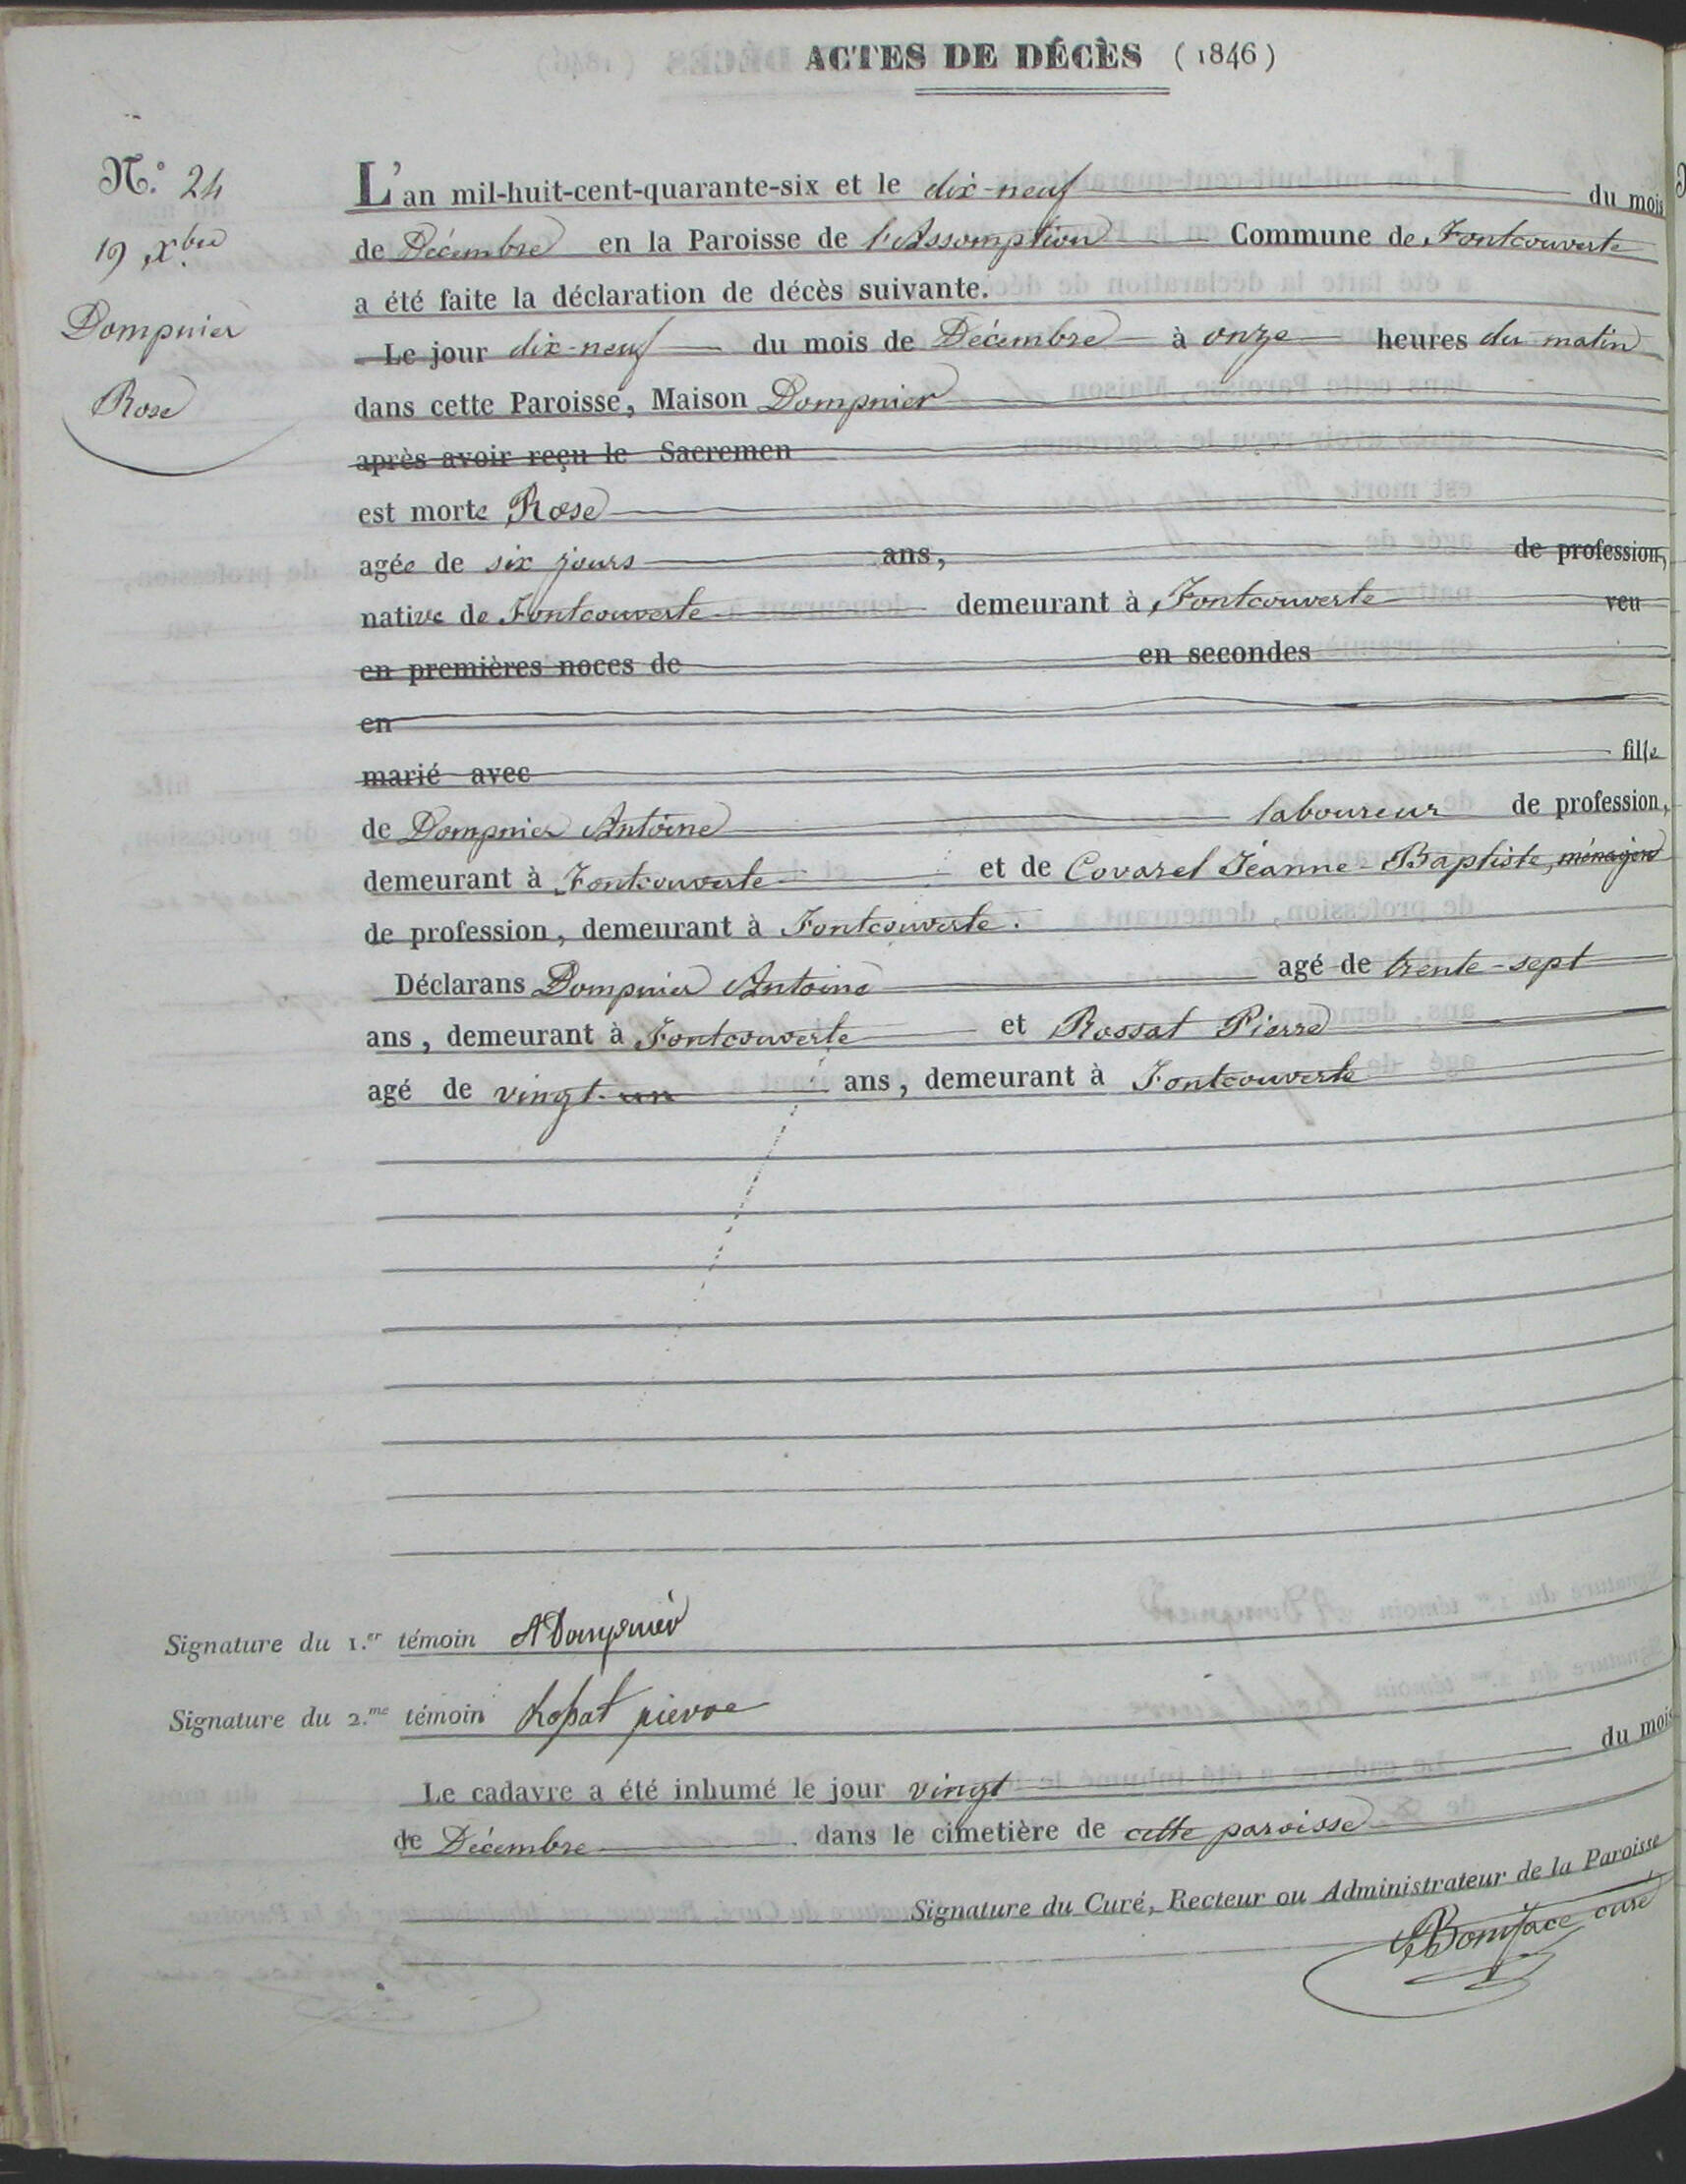 ACTES DE DÉCÈS (1846)
N.° 24
19 Xbre
Dompnier
Rose
L'an mil-huit-cent-quarante-six et le dix-neuf du mois
de Décembre en la Paroisse de l'Assomption Commune de Fontcouverte
a été faite la déclaration de décès suivante.
Le jour dix-neuf du mois de Décembre à onze heures du matin
dans cette Paroisse, Maison Dompnier
après avoir reçu le Sacremen
est morte Rose
agée de six jours ans, de profession,
native de Fontcouverte demeurant à Fontcouverte veu
en premières noces de en secondes
en
marié avec fille
de Dompnier Antoine laboureur de profession,
demeurant à Fontcouverte et de Covarel Jeanne-Baptiste, ménagère
de profession, demeurant à Fontcouverte.
Déclarans Dompnier Antoine agé de trente-sept
ans, demeurant à Fontcouverte et Rossat Pierre
agé de vingt-un ans, demeurant à Fontcouverte
Signature du 1.er témoin A Dompnier
Signature du 2.me témoin Rossat pierre
Le cadavre a été inhumé le jour vingt du mois
de Décembre dans le cimetière de cette paroisse
Signature du Curé, Recteur ou Administrateur de la Paroisse
Boniface curé